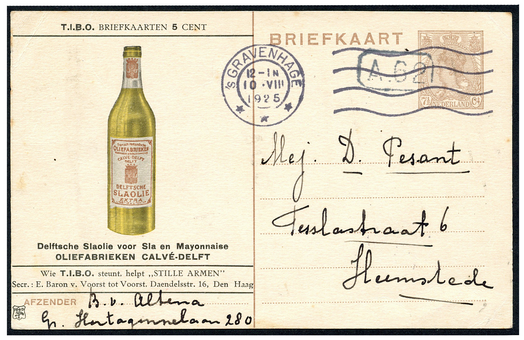 T.I.B.O. BRIEFKAARTEN 5 CENT
OLIEFABRIEKEN
CALVÉ-DELFT
DELFT
DELFTSCHE
SLAOLIE
EXTRA
Delftsche Slaolie voor Sla en Mayonnaise
OLIEFABRIEKEN CALVÉ-DELFT
Wie T.I.B.O. steunt, helpt „STILLE ARMEN"
Secr.: E. Baron v. Voorst tot Voorst. Daendelsstr. 16, Den Haag
AFZENDER B. v. Altena
Gr. Hertoginnelaan 280
BRIEFKAART
'S GRAVENHAGE
12-1N
10.VIII
1925
A.621
7½ NEDERLAND ct
Mej. D. Pesant
Teslastraat 6
Heemstede